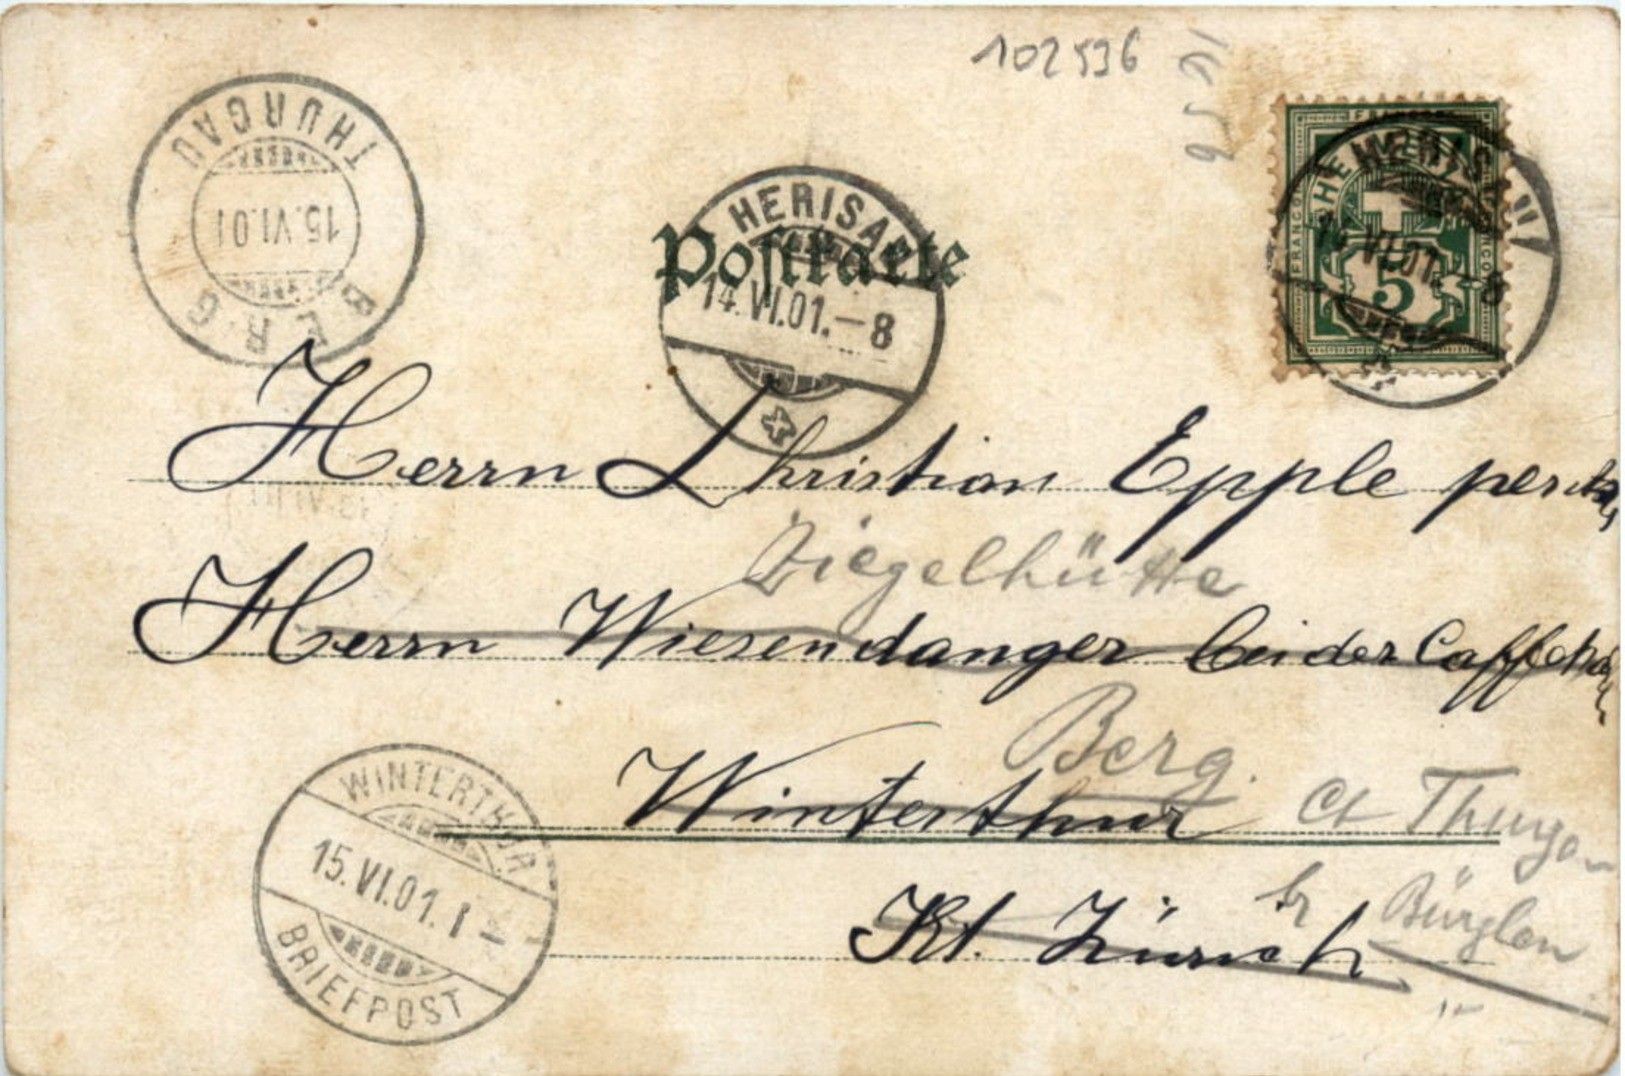 102536
THURGAU
15.VI.01
BERG
HERISAU
Postkarte
14.VI.01.-8
FRANCO
HELVETIA
5
HERISAU
14.VI.01.-8
Herrn Christian Epple
Ziegelhütte
Herrn Wiesendanger bei der
Berg.
Winterthur Ct Thurgau
Kt. Zürich Bürglen
WINTERTHUR
15.VI.01.
BRIEFPOST